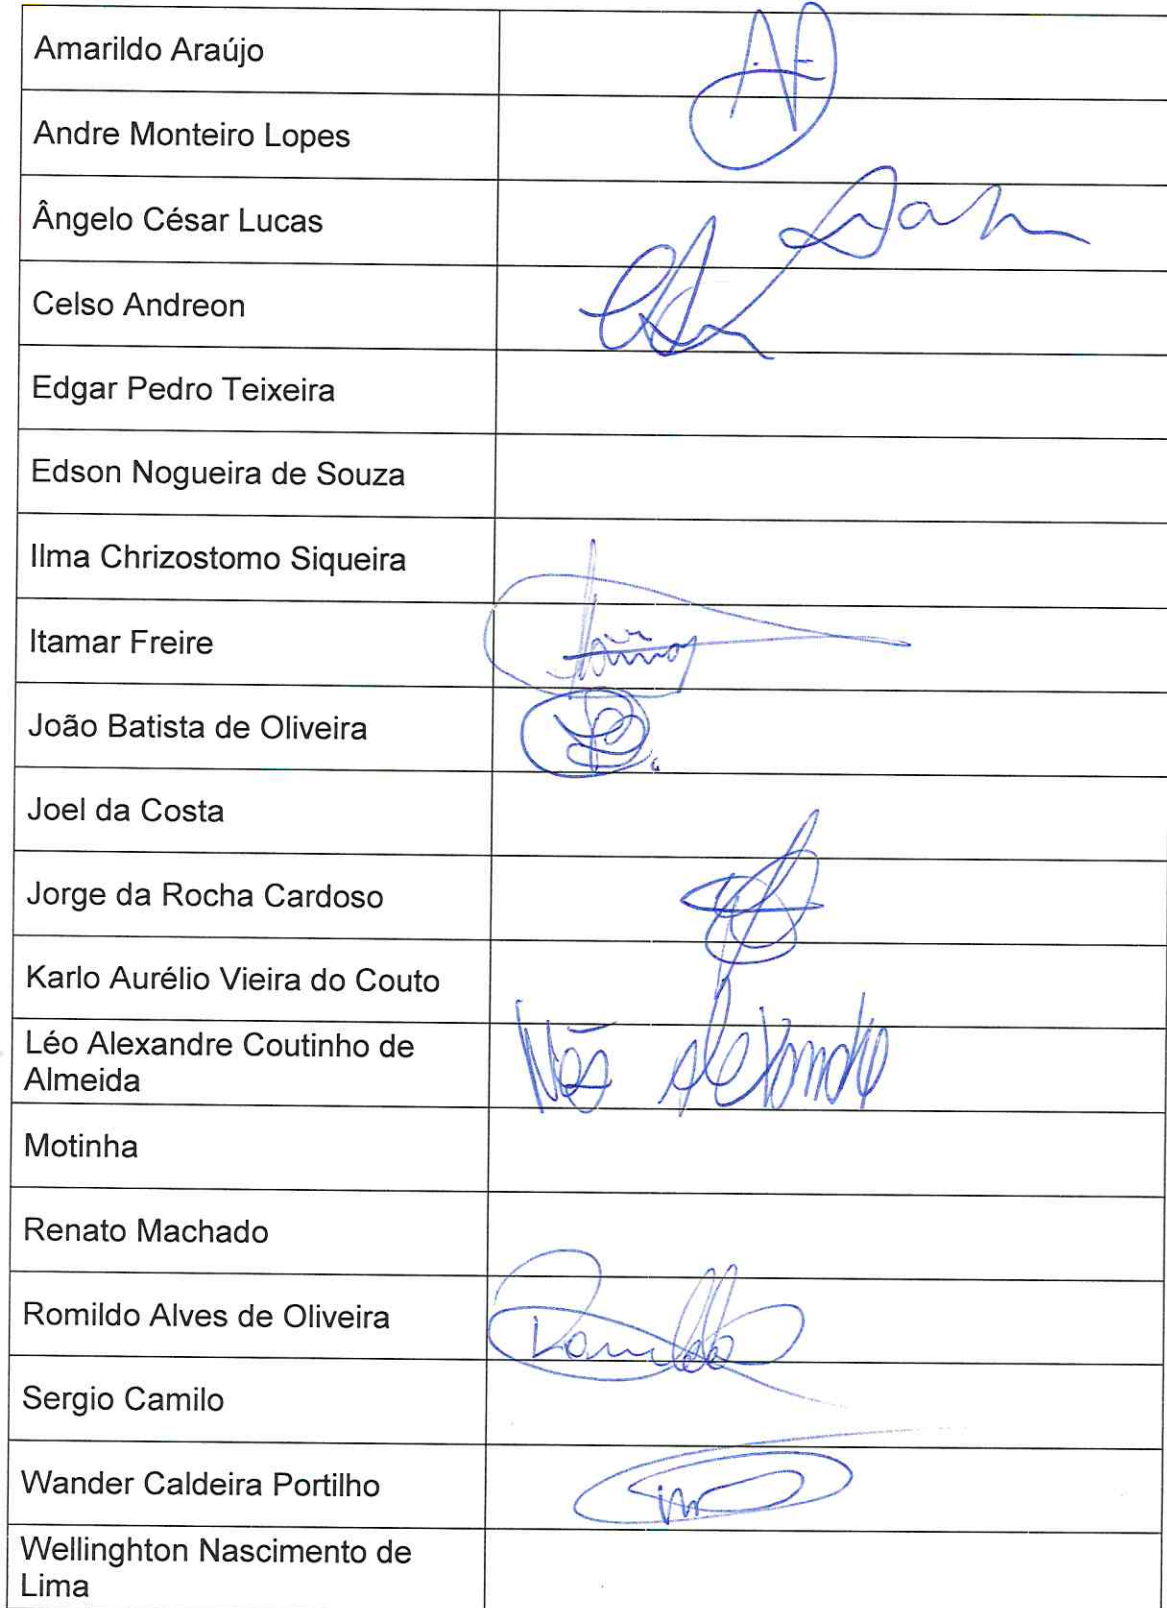 Amarildo Araújo
Andre Monteiro Lopes
Ângelo César Lucas
Celso Andreon
Edgar Pedro Teixeira
Edson Nogueira de Souza
Ilma Chrizostomo Siqueira
Itamar Freire
João Batista de Oliveira
Joel da Costa
Jorge da Rocha Cardoso
Karlo Aurélio Vieira do Couto
Léo Alexandre Coutinho de
Almeida
Alexandre
Motinha
Renato Machado
Romildo Alves de Oliveira
Romildo
Sergio Camilo
Wander Caldeira Portilho
Wellinghton Nascimento de
Lima